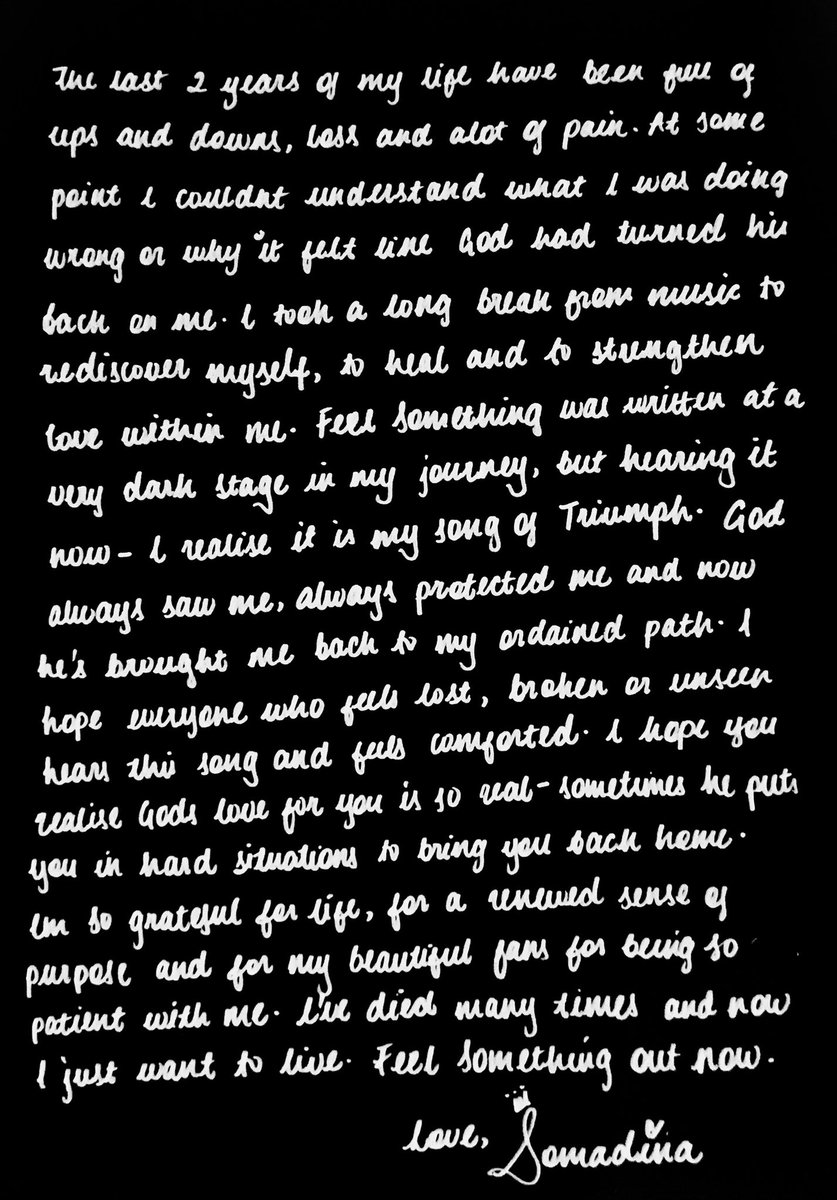 The last 2 years of my life have been full of
ups and downs, loss and alot of pain. At some
point I couldnt understand what I was doing
wrong or why it felt like God had turned his
back on me. I took a long break from music to
rediscover myself, to heal and to strengthen
love within me. Feel Something was written at a
very dark stage in my journey, but hearing it
now - I realise it is my song of Triumph. God
always saw me, always protected me and now
he's brought me back to my ordained path. I
hope everyone who feels lost, broken or unseen
hears this song and feels comforted. I hope you
realise Gods love for you is so real - sometimes he puts
you in hard situations to bring you back home.
Im so grateful for life, for a renewed sense of
purpose and for my beautiful fans for being so
patient with me. I've died many times and now
I just want to live. Feel Something out now.
Love, Somadina